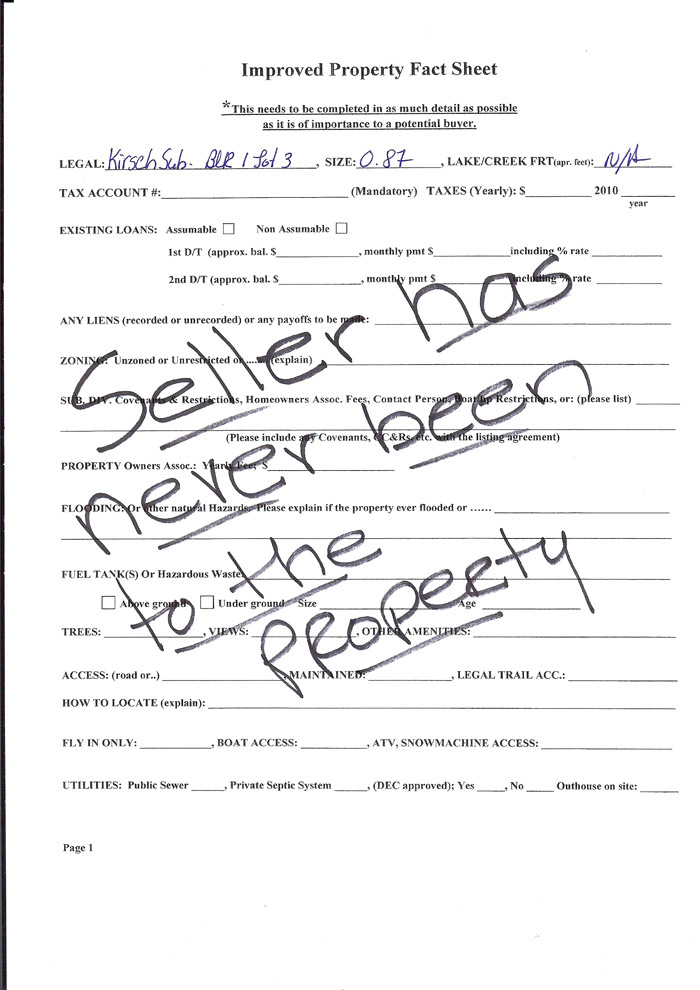 Improved Property Fact Sheet
*This needs to be completed in as much detail as possible
as it is of importance to a potential buyer.
LEGAL: Kirsch Sub. BLK 1 Lot 3, SIZE: 0.87, LAKE/CREEK FRT(apr. feet): N/A
TAX ACCOUNT #:____ (Mandatory) TAXES (Yearly): $____ 2010 ____
year
EXISTING LOANS: Assumable ☐ Non Assumable ☐
1st D/T (approx. bal. $____, monthly pmt $____including % rate ____
2nd D/T (approx. bal. $____, monthly pmt $____including % rate ____
ANY LIENS (recorded or unrecorded) or any payoffs to be made: ____
ZONING: Unzoned or Unrestricted or ..... (explain) ____
SUB. DIV. Covenants & Restrictions, Homeowners Assoc. Fees, Contact Person, Boat Up Restrictions, or: (please list) ____
(Please include any Covenants, CC&Rs, etc. with the listing agreement)
PROPERTY Owners Assoc.: Yearly Fee: $____
FLOODING: Or other natural Hazards. Please explain if the property ever flooded or ……
FUEL TANK(S) Or Hazardous Waste ____
☐ Above ground ☐ Under ground Size ____ Age ____
TREES: ____, VIEWS: ____, OTHER AMENITIES: ____
ACCESS: (road or..) ____, MAINTAINED: ____, LEGAL TRAIL ACC.: ____
HOW TO LOCATE (explain): ____
FLY IN ONLY: ____, BOAT ACCESS: ____, ATV, SNOWMACHINE ACCESS: ____
UTILITIES: Public Sewer ____, Private Septic System ____, (DEC approved); Yes ____, No ____ Outhouse on site: ____
Page 1
Seller has
never been
to the
property